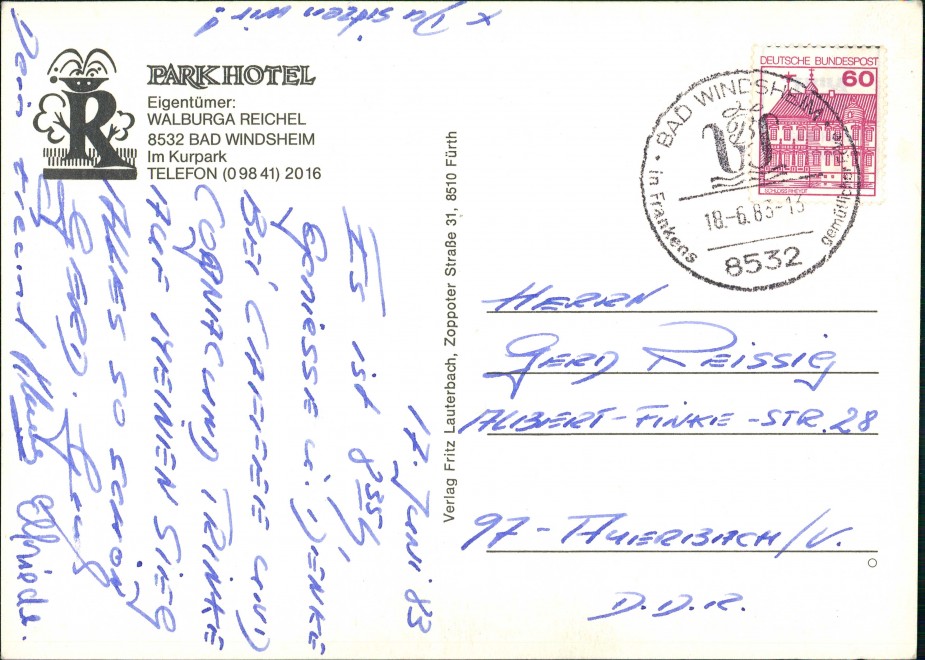 x Da sitzen wir!
PARKHOTEL
Eigentümer:
WALBURGA REICHEL
8532 BAD WINDSHEIM
Im Kurpark
TELEFON (0 98 41) 20 16
R
17. Juni 83
Es ist 8 35
GENIESSE U. DENKE
BEI CAFFEE UND
COGNAC UND TRINKE
AUF MEINEN SIEG
ALLES SO SCHON
GERD.
Dein Freund
Elfriede.
Verlag Fritz Lauterbach, Zoppoter Straße 31, 8510 Fürth
DEUTSCHE BUNDESPOST
60
SCHLOSS RHEYDT
BAD WINDSHEIM
in Frankens gemütlicher
18.-6.83-13
8532
HERRN
GERD REISSIG
ALBERT-FINKE-STR. 28
97-AUERBACH/V.
D.D.R.